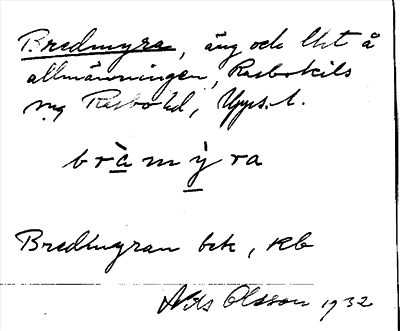 Bredmyra, äng och lht å
allmänningen, Rasbokils
sn, Rasbo hd, Upps. l.
bràmỳra
Bredmyran bek, kb
Nils Olsson 1932